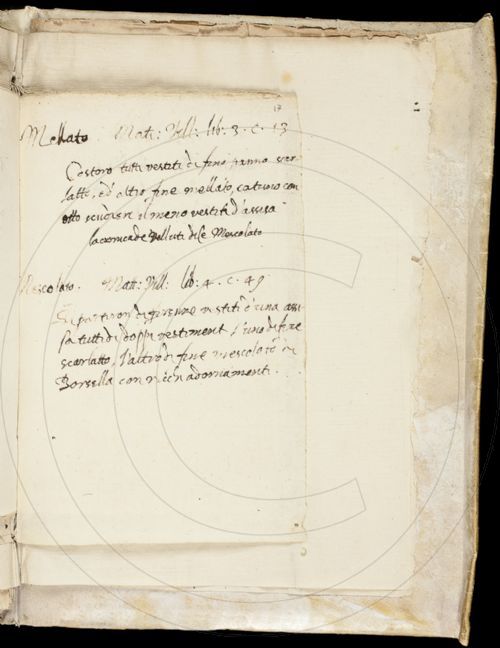 17
Mellato Matt: Vill: lib: 3. c. 13
Costoro tutti vestiti di fino panno scar
latto, ed altro fine mellato, catuno con
otto scudieri il meno vestiti d'assisa
la cronica de Velluti dice Mescolato
Mescolato. Matt: Vill: lib: 4. c. 49
Si partiron di Firenze vestiti d'una assi
sa tutti di doppi vestimenti, l'uno di fine
scarlatto, l'altro di fine mescolato di
Borsella con ricchi adornamenti.